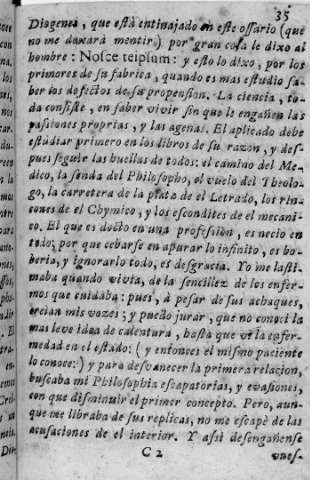 35
Diogenes, que està entinajado en este ossario (que
no me dexarà mentir) por gran cosa le dixo al
hombre: Nosce teipsum: y esto lo dixo, por los
primores de su fabrica, quando es mas estudio sa-
ber los defectos de su propension. La ciencia, to-
da consiste, en saber vivir sin que le engañen las
passiones proprias, y las agenas. El aplicado debe
estudiar primero en los libros de su razon, y des-
pues seguir las huellas de todos: el camino del Me-
dico, la senda del Philosopho, el vuelo del Theolo-
go, la carretera de la plaza de el Letrado, los rin-
cones de el Chymico, y los escondites de el mecani-
co. El que es docto en una profession, es necio en
todo; por que cebarse en apurar lo infinito, es bo-
beria, y ignorarlo todo, es desgracia. Yo me lasti-
maba quando vivia, de la sencillez de los enfer-
mos que cuidaba: pues, à pesar de sus achaques,
creian mis vozes; y puedo jurar, que no conocì la
mas leve idea de calentura, hasta que vì la enfer-
medad en el estado: (y entonces el mismo paciente
lo conoce:) y para desvanecer la primera relacion,
buscaba mi Philosophia escapatorias, y evasiones,
con que disminuir el primer concepto. Pero, aun-
que me libraba de sus replicas, no me escapè de las
acusaciones de el interior. Y assi desengañense
C 2
unes-